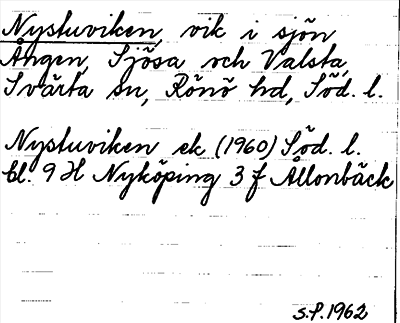 Nystuviken, vik i sjön
Ången, Sjösa och Valsta,
Svärta sn, Rönö hd, Söd. l.
Nystuviken ek (1960) Söd. l.
bl. 9 H Nyköping 3 f Ållonbäck
S.P. 1962